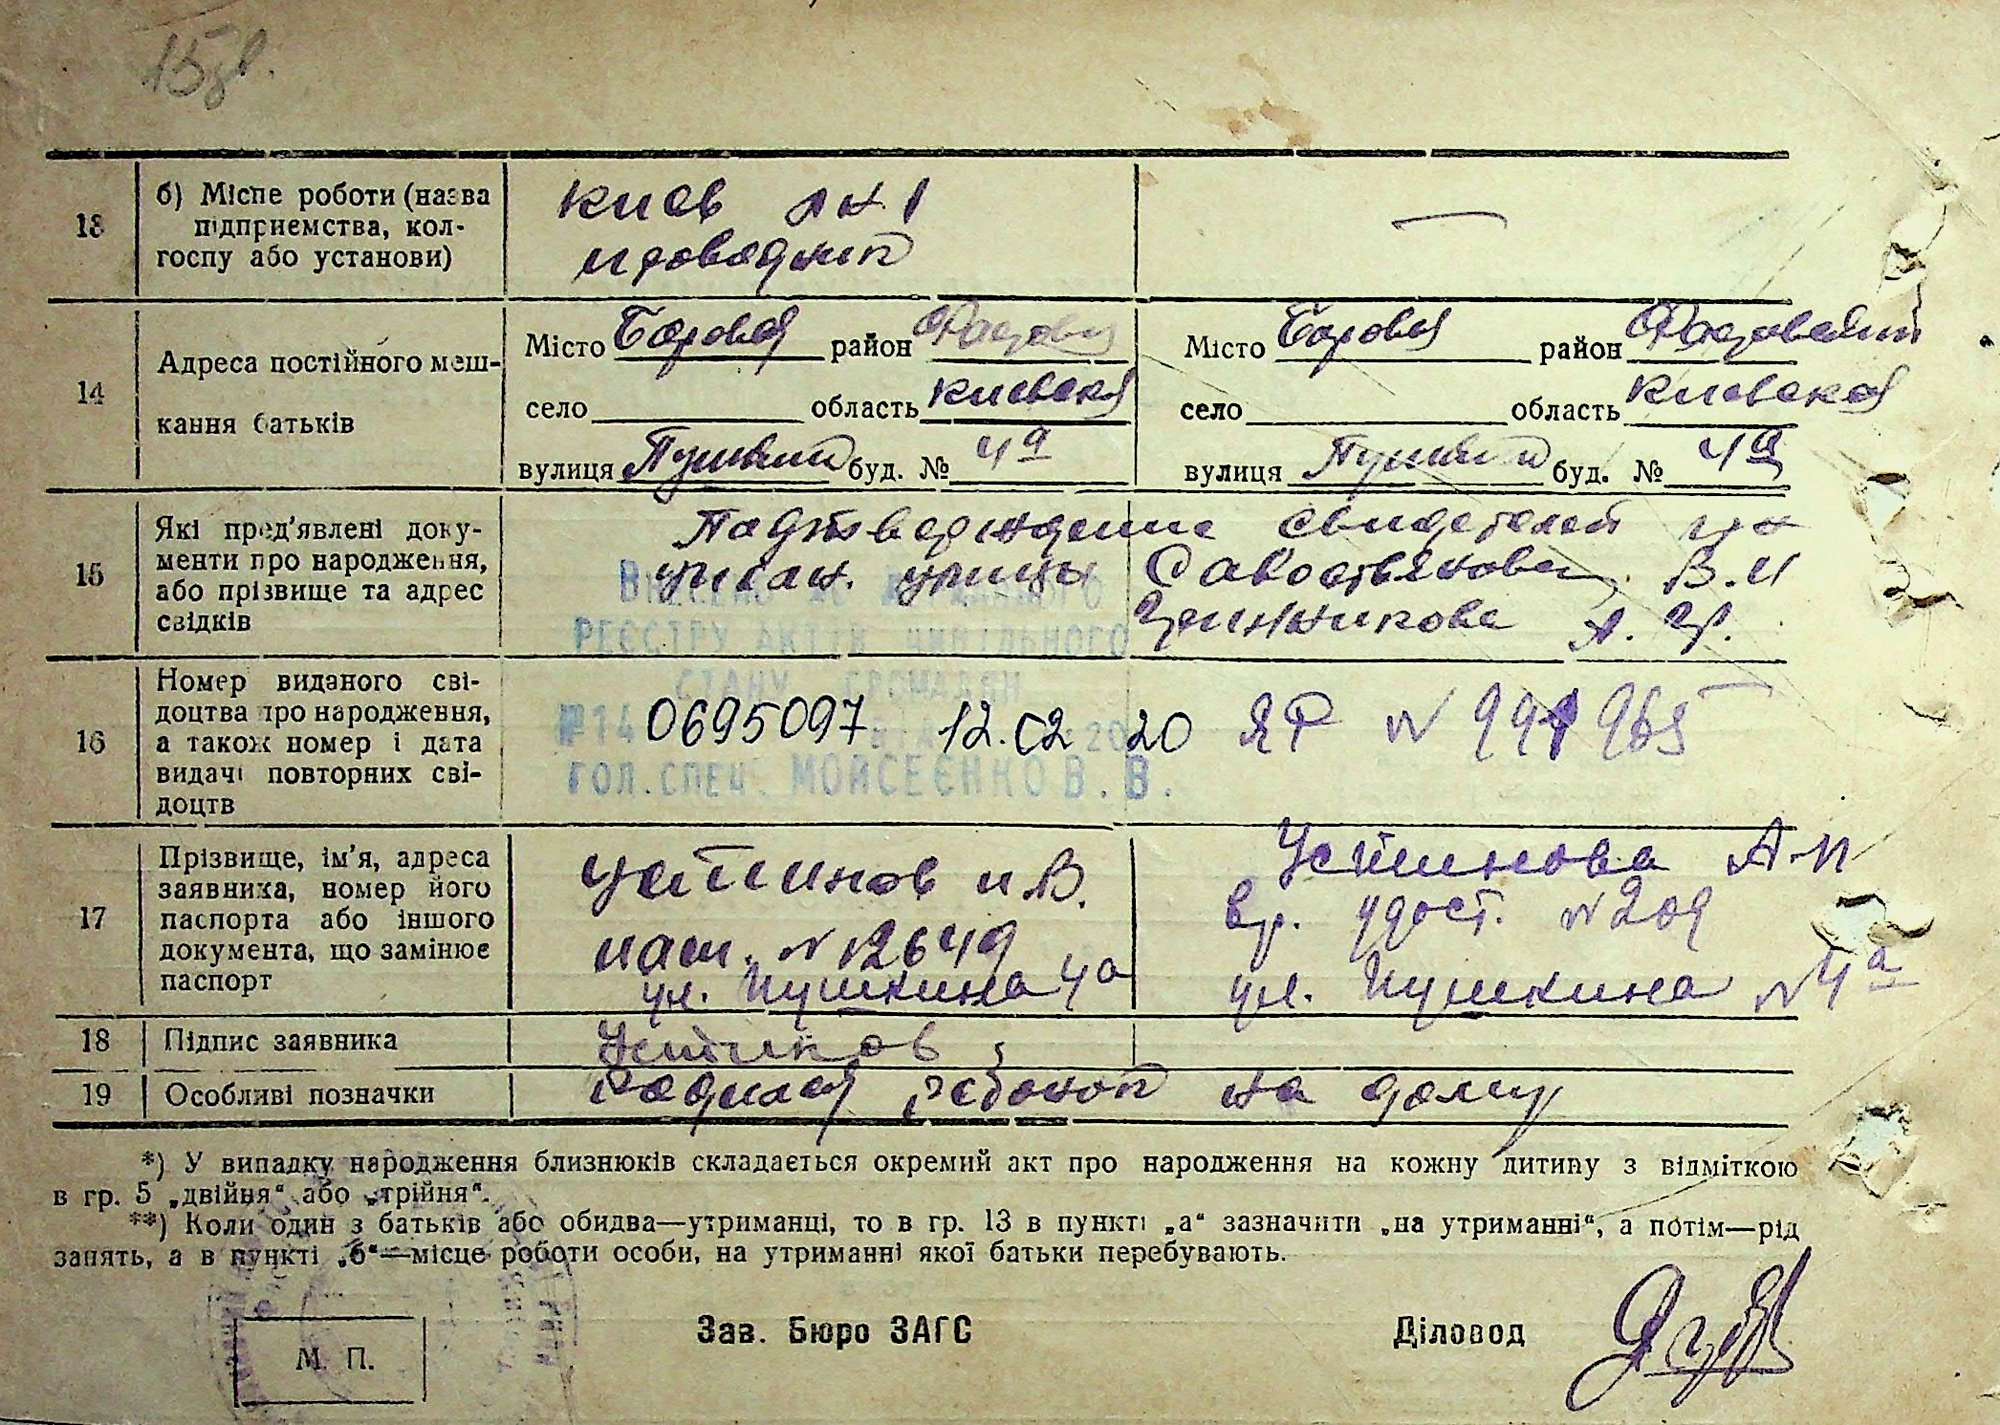 15зв.
13
б) Місце роботи (назва
підприємства, кол-
госпу або установи)
Киев
14
Адреса постійного меш-
кання батьків
Місто Боровая район
село область Киевская
вулиця Пушкин буд. № 4а
Місто Боровая район Фастовский
село область Киевская
вулиця Пушкин буд. № 4а
15
Які пред'явлені доку-
менти про народження,
або прізвище та адрес
свідків
Подтверждение свидетелей
улицы Савостьянова В. И
А. Гр.
ВНЕСЕНО ДО ДЕРЖАВНОГО
РЕЄСТРУ АКТІВ ЦИВІЛЬНОГО
СТАНУ ГРОМАДЯН
№ 14
ГОЛ. СПЕЦ. МОЙСЕЄНКО В. В.
16
Номер виданого сві-
доцтва про народження,
а також номер і дата
видачі повторних сві-
доцтв
0695097 12.02 20 ЯР № 991965
17
Прізвище, ім'я, адреса
заявника, номер його
паспорта або іншого
документа, що замінює
паспорт
Устинов И В.
пасп. № 12649
ул. Пушкина 4а
Устинова А-П
вр. удост. № 209
ул. Пушкина № 4а
18
Підпис заявника
Устинов
19
Особливі позначки
Родился ребенок на дому
*) У випадку народження близнюків складається окремий акт про народження на кожну дитину з відміткою
в гр. 5 „двійня“ або „трійня“.
**) Коли один з батьків або обидва—утриманці, то в гр. 13 в пункті „а“ зазначити „на утриманні“, а потім—рід
занять, а в пункті „б“—місце роботи особи, на утриманні якої батьки перебувають.
М. П.
Зав. Бюро ЗАГС
Діловод